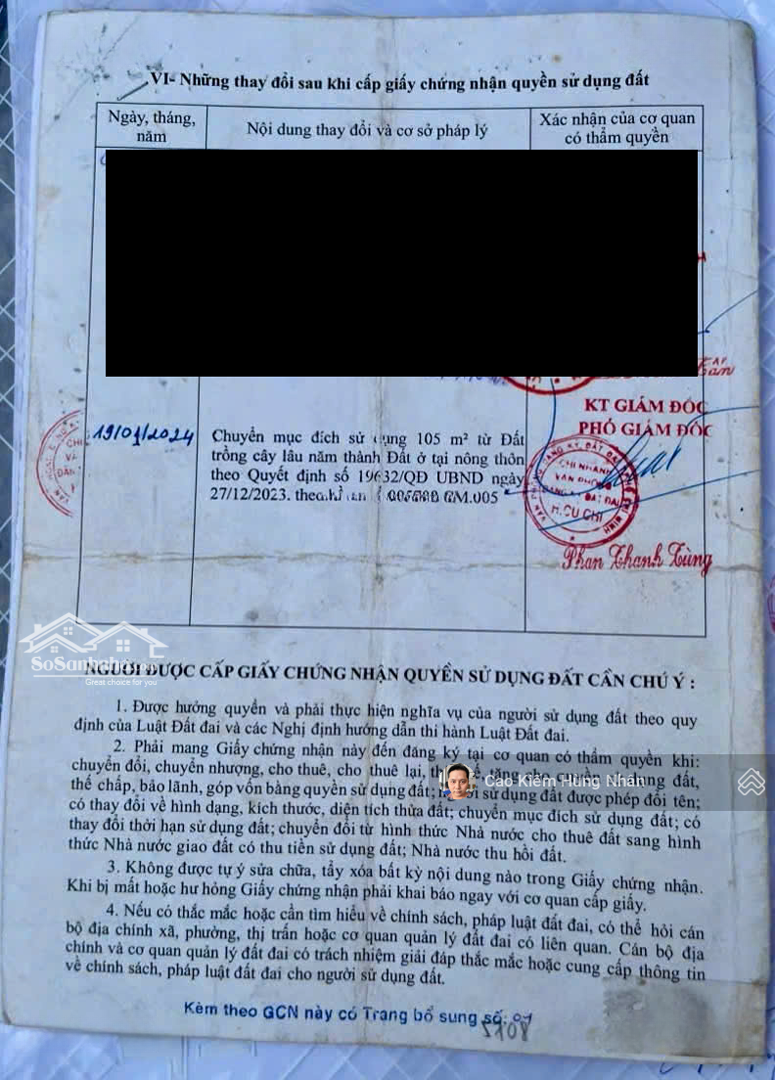 VI- Những thay đổi sau khi cấp giấy chứng nhận quyền sử dụng đất
Ngày, tháng, năm
Nội dung thay đổi và cơ sở pháp lý
Xác nhận của cơ quan có thẩm quyền
19/01/2024
Chuyển mục đích sử dụng 105 m² từ Đất
trồng cây lâu năm thành Đất ở tại nông thôn
theo Quyết định số 19632/QĐ UBND ngày
27/12/2023. theo CM.005
KT GIÁM ĐỐC
PHÓ GIÁM ĐỐC
CHI NHÁNH
VĂN PHÒNG
ĐĂNG KÝ ĐẤT ĐAI
H.CỦ CHI
Phan Thanh Tùng
SoSanhnha
Great choice for you
NGƯỜI ĐƯỢC CẤP GIẤY CHỨNG NHẬN QUYỀN SỬ DỤNG ĐẤT CẦN CHÚ Ý :
1. Được hưởng quyền và phải thực hiện nghĩa vụ của người sử dụng đất theo quy
định của Luật Đất đai và các Nghị định hướng dẫn thi hành Luật Đất đai.
2. Phải mang Giấy chứng nhận này đến đăng ký tại cơ quan có thẩm quyền khi:
chuyển đổi, chuyển nhượng, cho thuê, cho thuê lại, dụng đất,
thế chấp, bảo lãnh, góp vốn bằng quyền sử dụng đất; sử dụng đất được phép đổi tên;
có thay đổi về hình dạng, kích thước, diện tích thửa đất; chuyển mục đích sử dụng đất; có
thay đổi thời hạn sử dụng đất; chuyển đổi từ hình thức Nhà nước cho thuê đất sang hình
thức Nhà nước giao đất có thu tiền sử dụng đất; Nhà nước thu hồi đất.
Cao Kiếm Hùng Nhân
3. Không được tự ý sửa chữa, tẩy xóa bất kỳ nội dung nào trong Giấy chứng nhận.
Khi bị mất hoặc hư hỏng Giấy chứng nhận phải khai báo ngay với cơ quan cấp giấy.
4. Nếu có thắc mắc hoặc cần tìm hiểu về chính sách, pháp luật đất đai, có thể hỏi cán
bộ địa chính xã, phường, thị trấn hoặc cơ quan quản lý đất đai có liên quan. Cán bộ địa
chính và cơ quan quản lý đất đai có trách nhiệm giải đáp thắc mắc hoặc cung cấp thông tin
về chính sách, pháp luật đất đai cho người sử dụng đất.
Kèm theo GCN này có Trang bổ sung số: 01